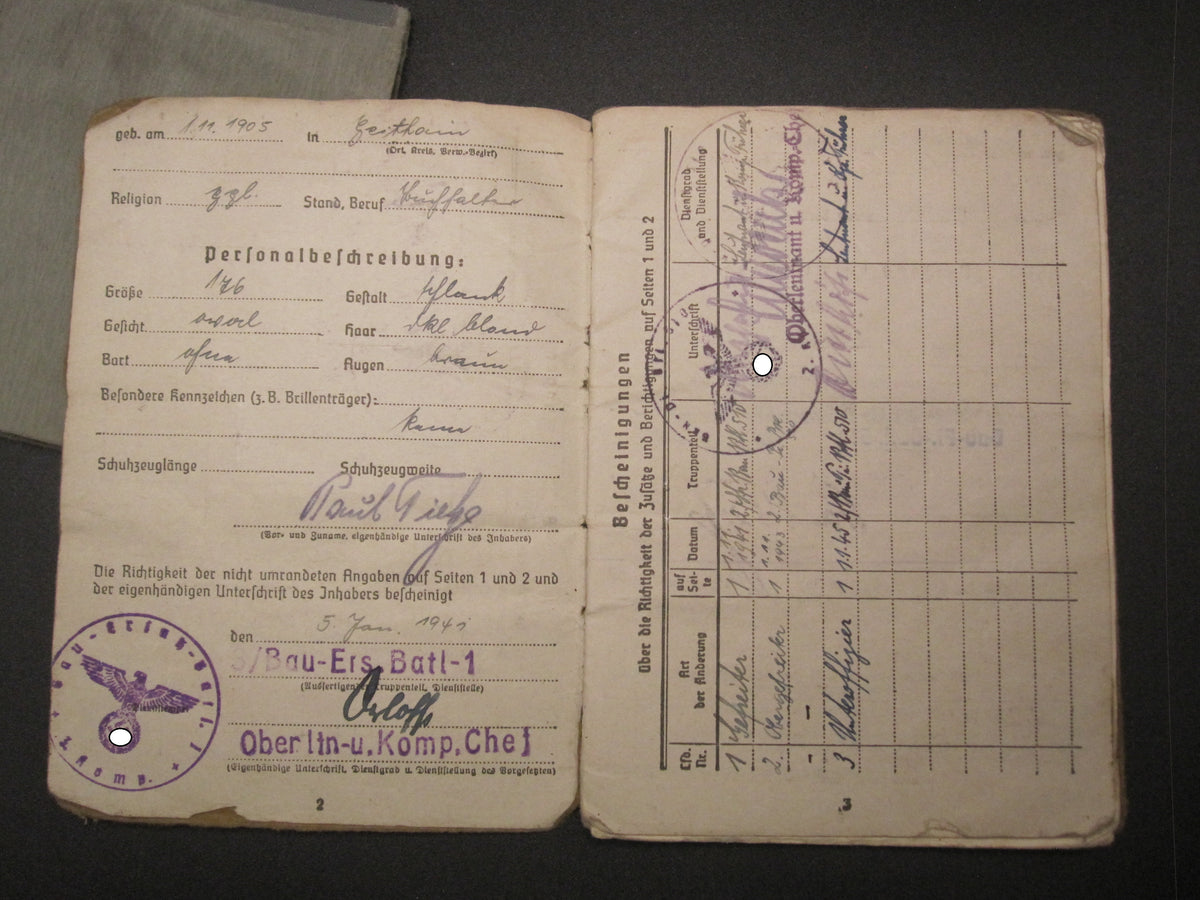 geb. am 1.11.1905 in Geithain
(Ort, Kreis, Verw.-Bezirk)
Religion ggl. Stand, Beruf Buchhalter
Personalbeſchreibung:
Größe 176 Geſtalt ſchlank
Geſicht oval Haar dkl. blond
Bart ohne Augen braun
Beſondere Kennzeichen (z. B. Brillenträger):
keine
Schuhzeuglänge Schuhzeugweite
Paul
(Vor- und Zuname, eigenhändige Unterſchrift des Inhabers)
Die Richtigkeit der nicht umrandeten Angaben auf Seiten 1 und 2 und
der eigenhändigen Unterſchrift des Inhabers beſcheinigt
den 5. Jan. 1941
/Bau-Ers. Batl-1
(Ausfertigender Truppenteil, Dienſtſtelle)
Orloff
Oberltn-u. Komp. Chef
(Eigenhändige Unterſchrift, Dienſtgrad u. Dienſtſtellung des Vorgeſetzten)
Bau-Erſatz-Batl. 1
Komp.
2
Beſcheinigungen
über die Richtigkeit der Zuſätze und Berichtigungen auf Seiten 1 und 2
Lfd. Nr. Art der Änderung auf Seite Datum Truppenteil Unterſchrift Dienſtgrad und Dienſtſtellung
1 Gefreiter 1 1.11. 1941
2. Obergefreiter 1 1.11. 1943 2. Bau-
Oberleutnant u. Komp.-Che
3 Unteroffizier 1 1.1.45
3